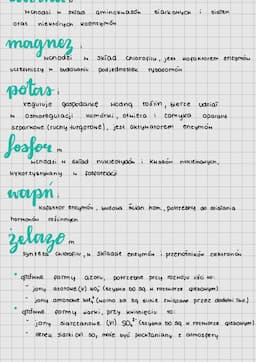 wchodzi w skład aminokwasów siarkowych i białek
oraz niektórych koenzymów
magnez:
wchodzi w skład chlorofilu, jest kofaktorem enzymów
uczestniczy w budowaniu podjednostek rybosomów
potas:
reguluje gospodarkę wodną roślin, bierze udział
w osmoregulacji komórki, otwiera i zamyka aparaty
szparkowe (ruchy turgorowe), jest aktywatorem enzymów
fosfor:
wchodzi w skład nukleotydów i kwasów nukleinowych,
wykorzystywany w fotosyntezie
wapń:
kofaktor enzymów, budowa ścian kom., potrzebny do działania
hormonów roślinnych
żelazo:
synteza chlorofilu, w składzie enzymów i przenośników elektronów
główne formy azotu, potrzebne przy rozwoju roś. to:
- jony azotowe (V) NO₃⁻ (szybko są w roztworze glebowym)
- jony amonowe NH₄⁺
główne formy siarki, przy kwitnieniu to:
- jony siarczanowe (VI) SO₄²⁻ (szybko są w roztworze glebowym)
- tlenki siarki (IV) SO₂ może być pochłaniany z atmosfery